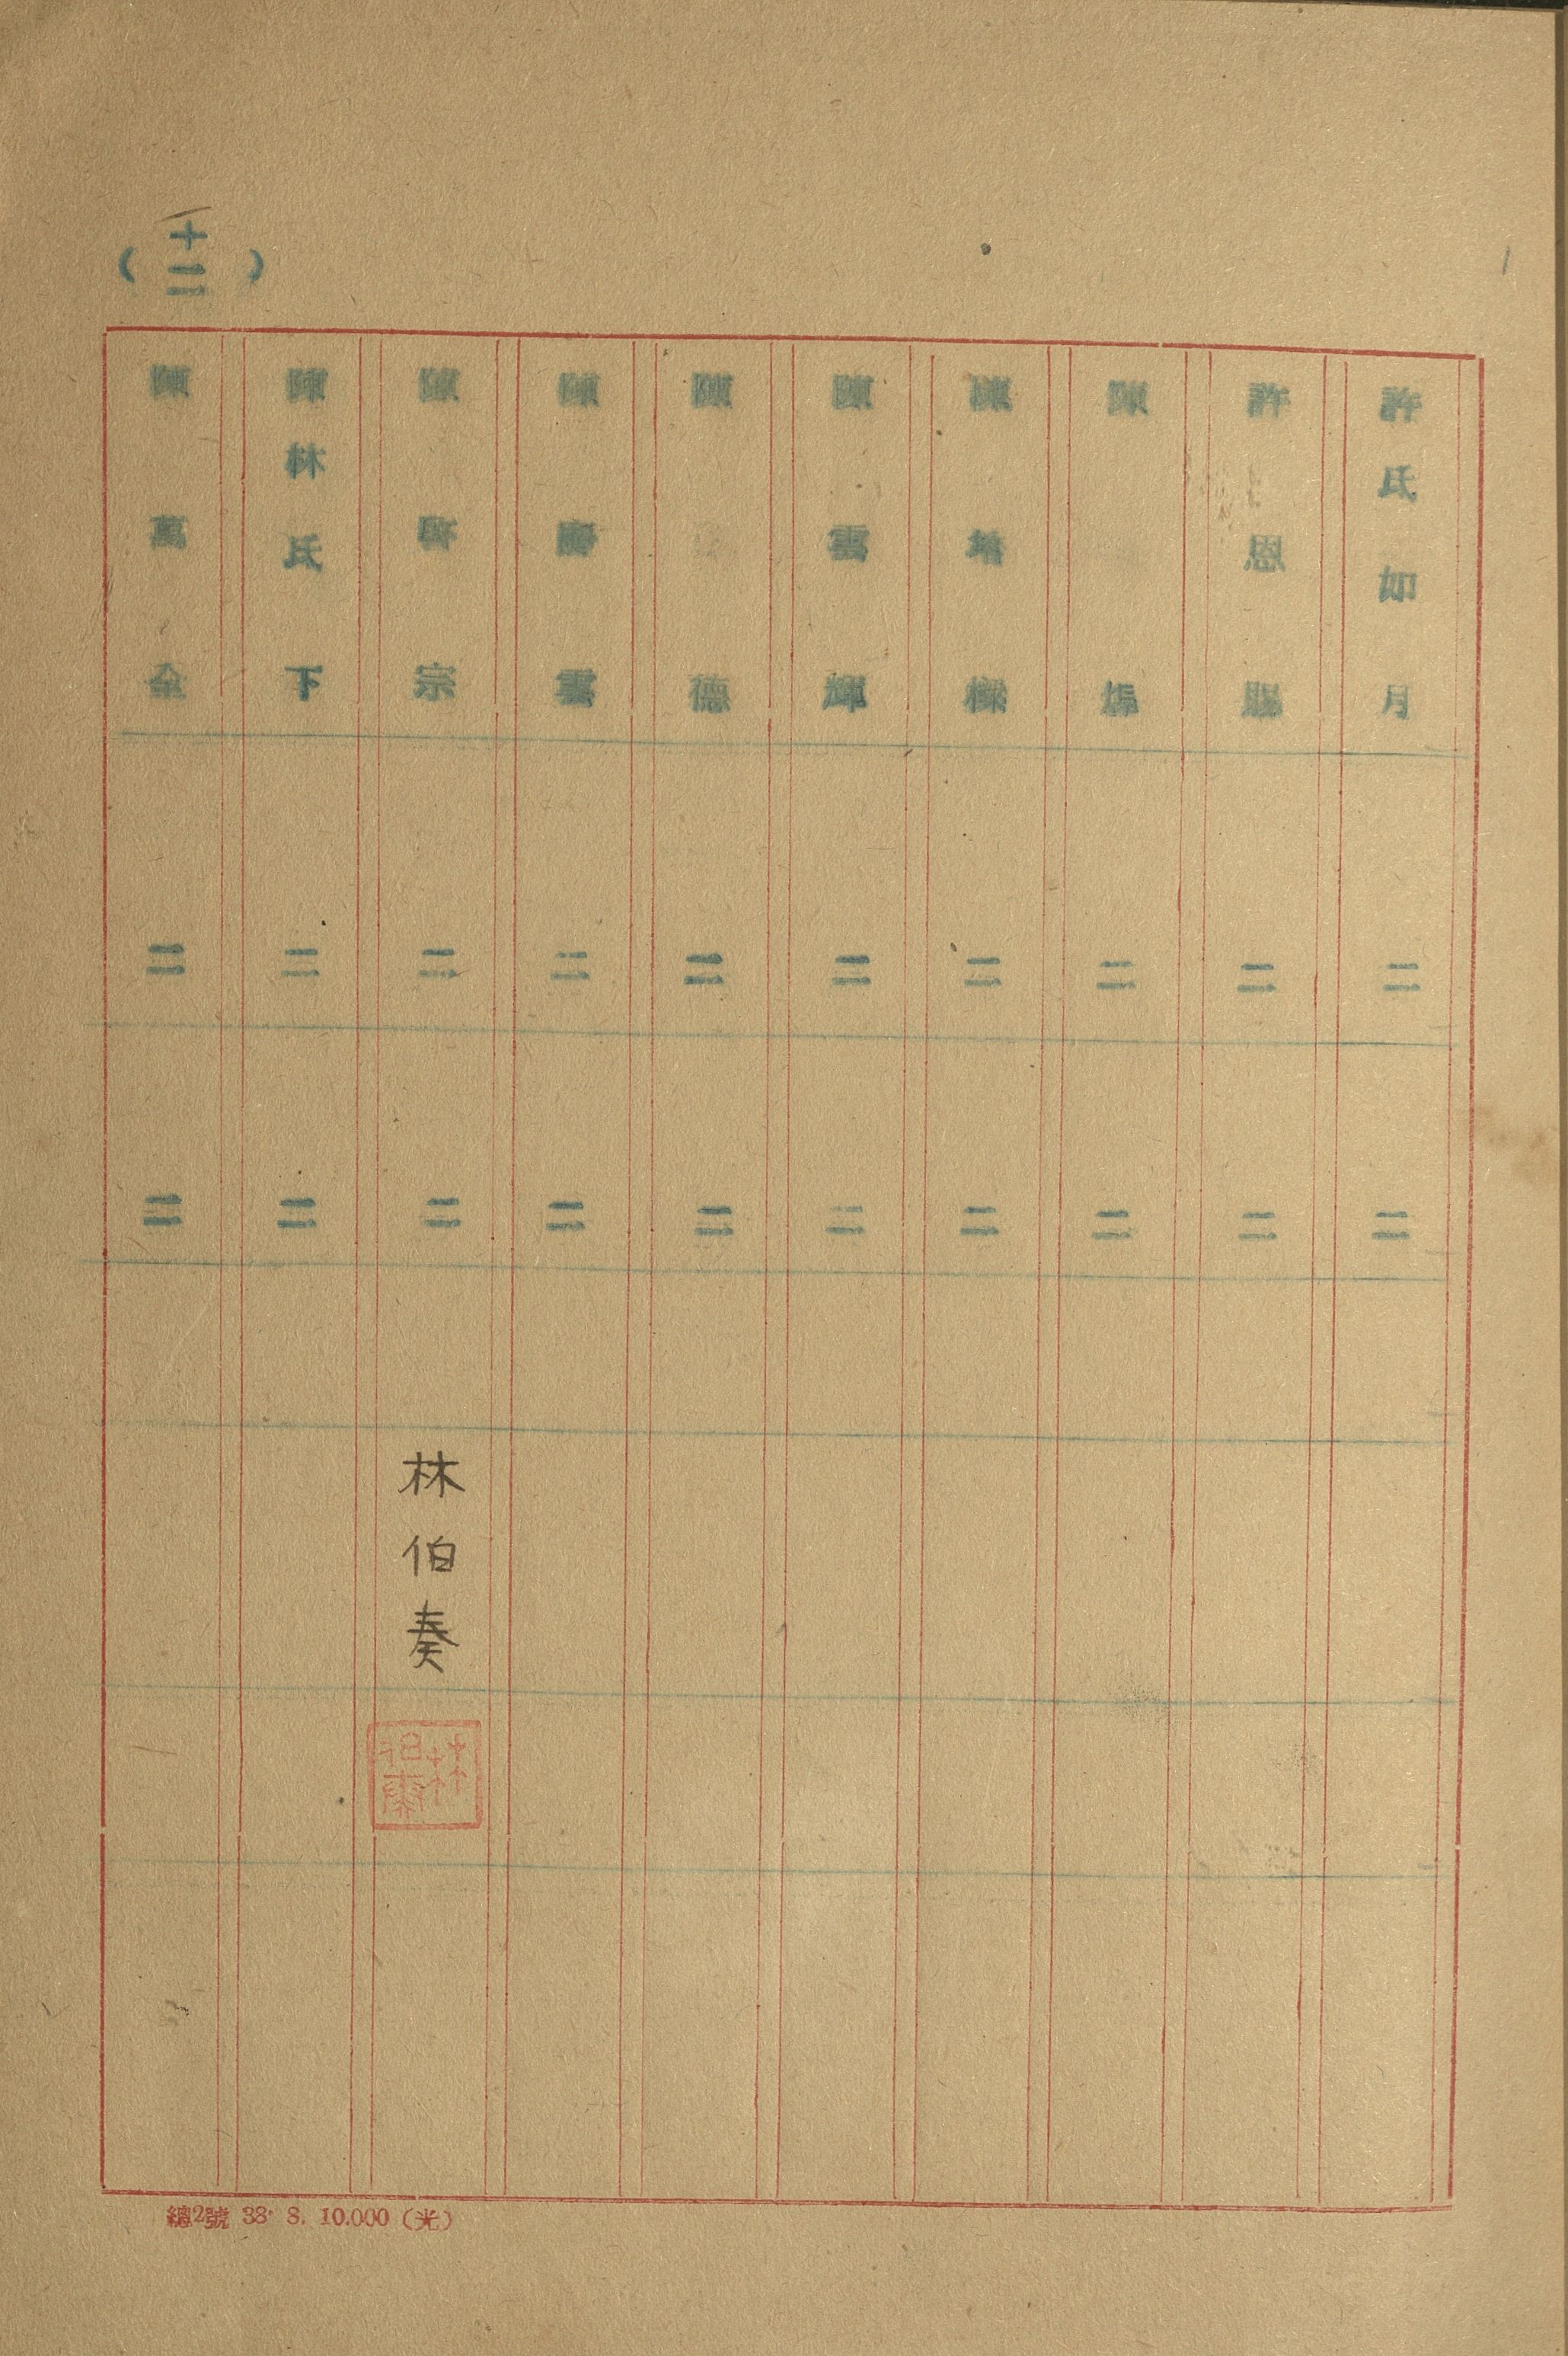 許氏如月 二 二
許恩賜 二 二
陳 二 二
陳培樑 二 二
陳雲輝 二 二
陳 德 二 二
陳慶雲 二 二
陳啓宗 二 二 林伯奏
陳林氏下 二 二
陳萬全 二 二
(十二)
林伯奏
總2號 38. 8. 10.000 (光)